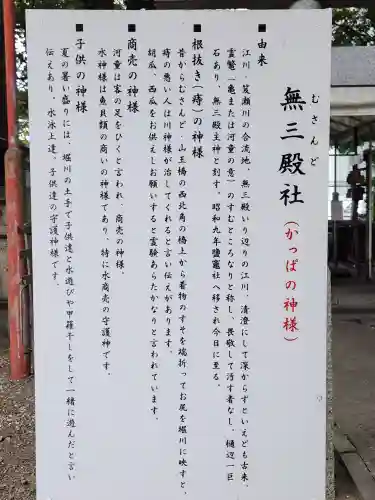 無三殿社
むさんど
(かっぱの神様)
■由来
江川・笈瀬川の合流地、無三殿いり辺りの江川、清澄にして深からずといえども古来、
霊鼈(亀または河童の意)のすむところなりと称し、畏敬して汚す者なし。樋辺一巨
石あり、無三殿主神と刻す。昭和九年鹽竈社へ移され今日に至る。
■根抜き(痔)の神様
昔からむさんど、山王橋の西北角の橋上から着物のすそを端折ってお尻を堀川に映すと、
痔の悪い人は川神様が治してくれると言い伝えがあります。
胡瓜、西瓜をお供えしお願いすると霊験あらたかなりと言われています。
■商売の神様
河童は客の足をひくと言われ、商売の神様。
水神様は魚貝類の商いの神様であり、特に水商売の守護神です。
■子供の神様
夏の暑い盛りには、堀川の土手で子供達と水遊びや甲羅干しをして一緒に遊んだと言い
伝えあり、水泳上達、子供達の守護神様です。